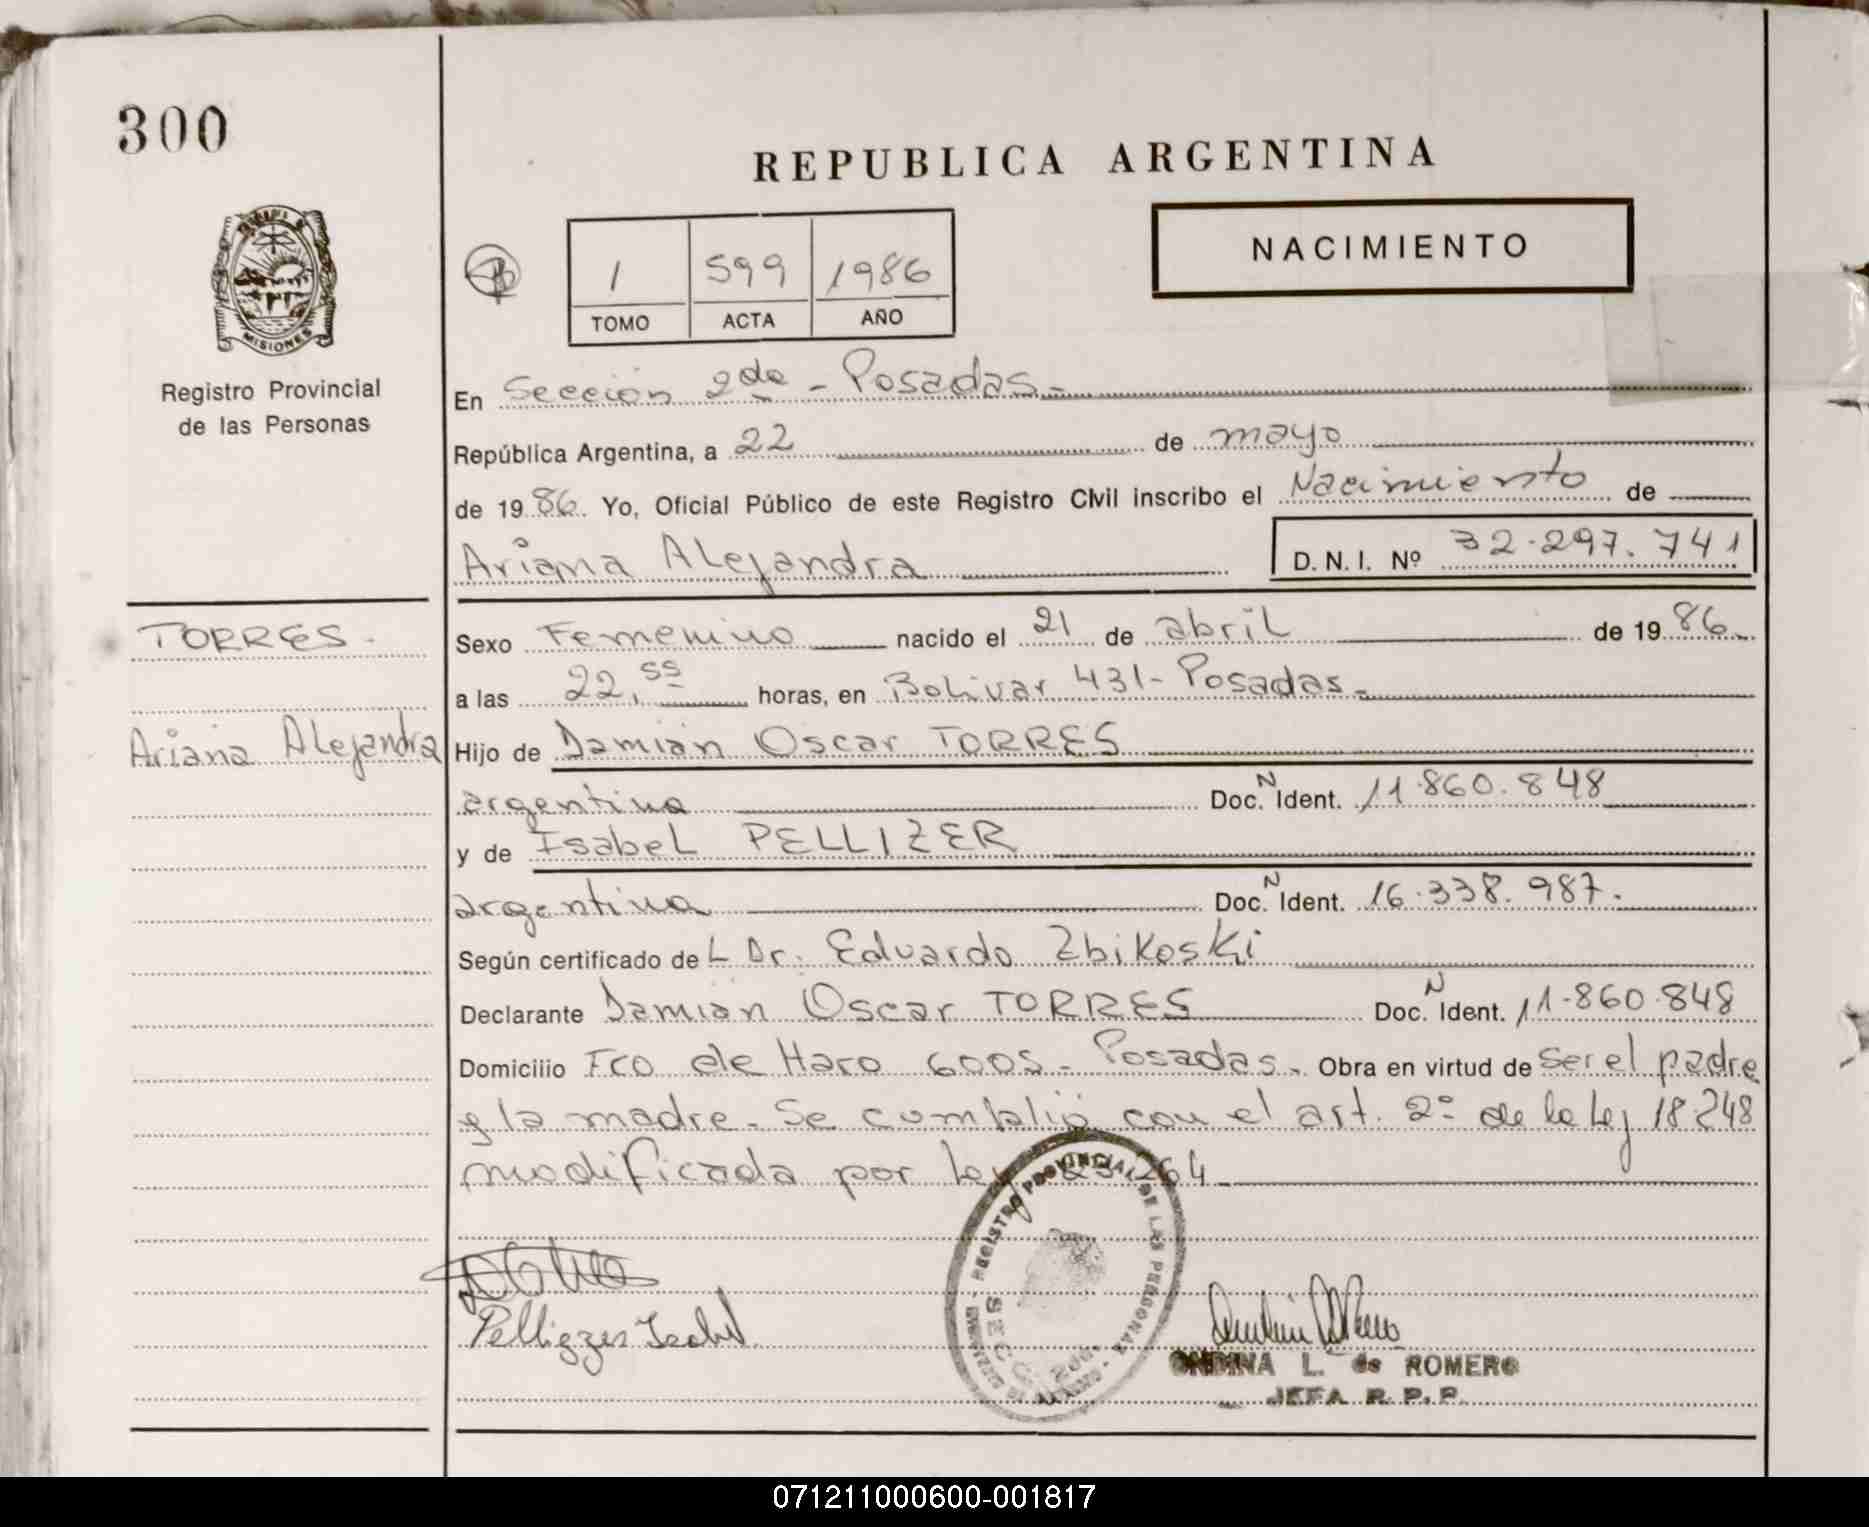 300
REPUBLICA ARGENTINA
NACIMIENTO
1 599 1986
TOMO ACTA AÑO
MISIONES
Registro Provincial
de las Personas
En Sección 2da - Posadas.-
República Argentina, a 22 de mayo
de 1986. Yo, Oficial Público de este Registro Civil inscribo el Nacimiento de
Ariana Alejandra D.N.I. Nº 32.297.741
TORRES.
Ariana Alejandra
Sexo Femenino nacido el 21 de abril de 1986.
a las 22,55 horas, en Bolivar 431- Posadas.-
Hijo de Damián Oscar TORRES
argentino Doc. N Ident. 11.860.848
y de Isabel PELLIZER
argentina Doc. N Ident. 16.338.987.
Según certificado de L Dr. Eduardo Zbikoski
Declarante Damián Oscar TORRES Doc. N Ident. 11.860.848
Domicilio Fco de Haro 6005- Posadas. Obra en virtud de ser el padre
y la madre. Se cumplió con el art. 2º de la Ley 18.248
modificada por Ley 23.264
REGISTRO PROVINCIAL DE LAS PERSONAS
SECC. 2da.
Pellizzer Isabel
ONDINA L. de ROMERO
JEFA R. P. P.
071211000600-001817